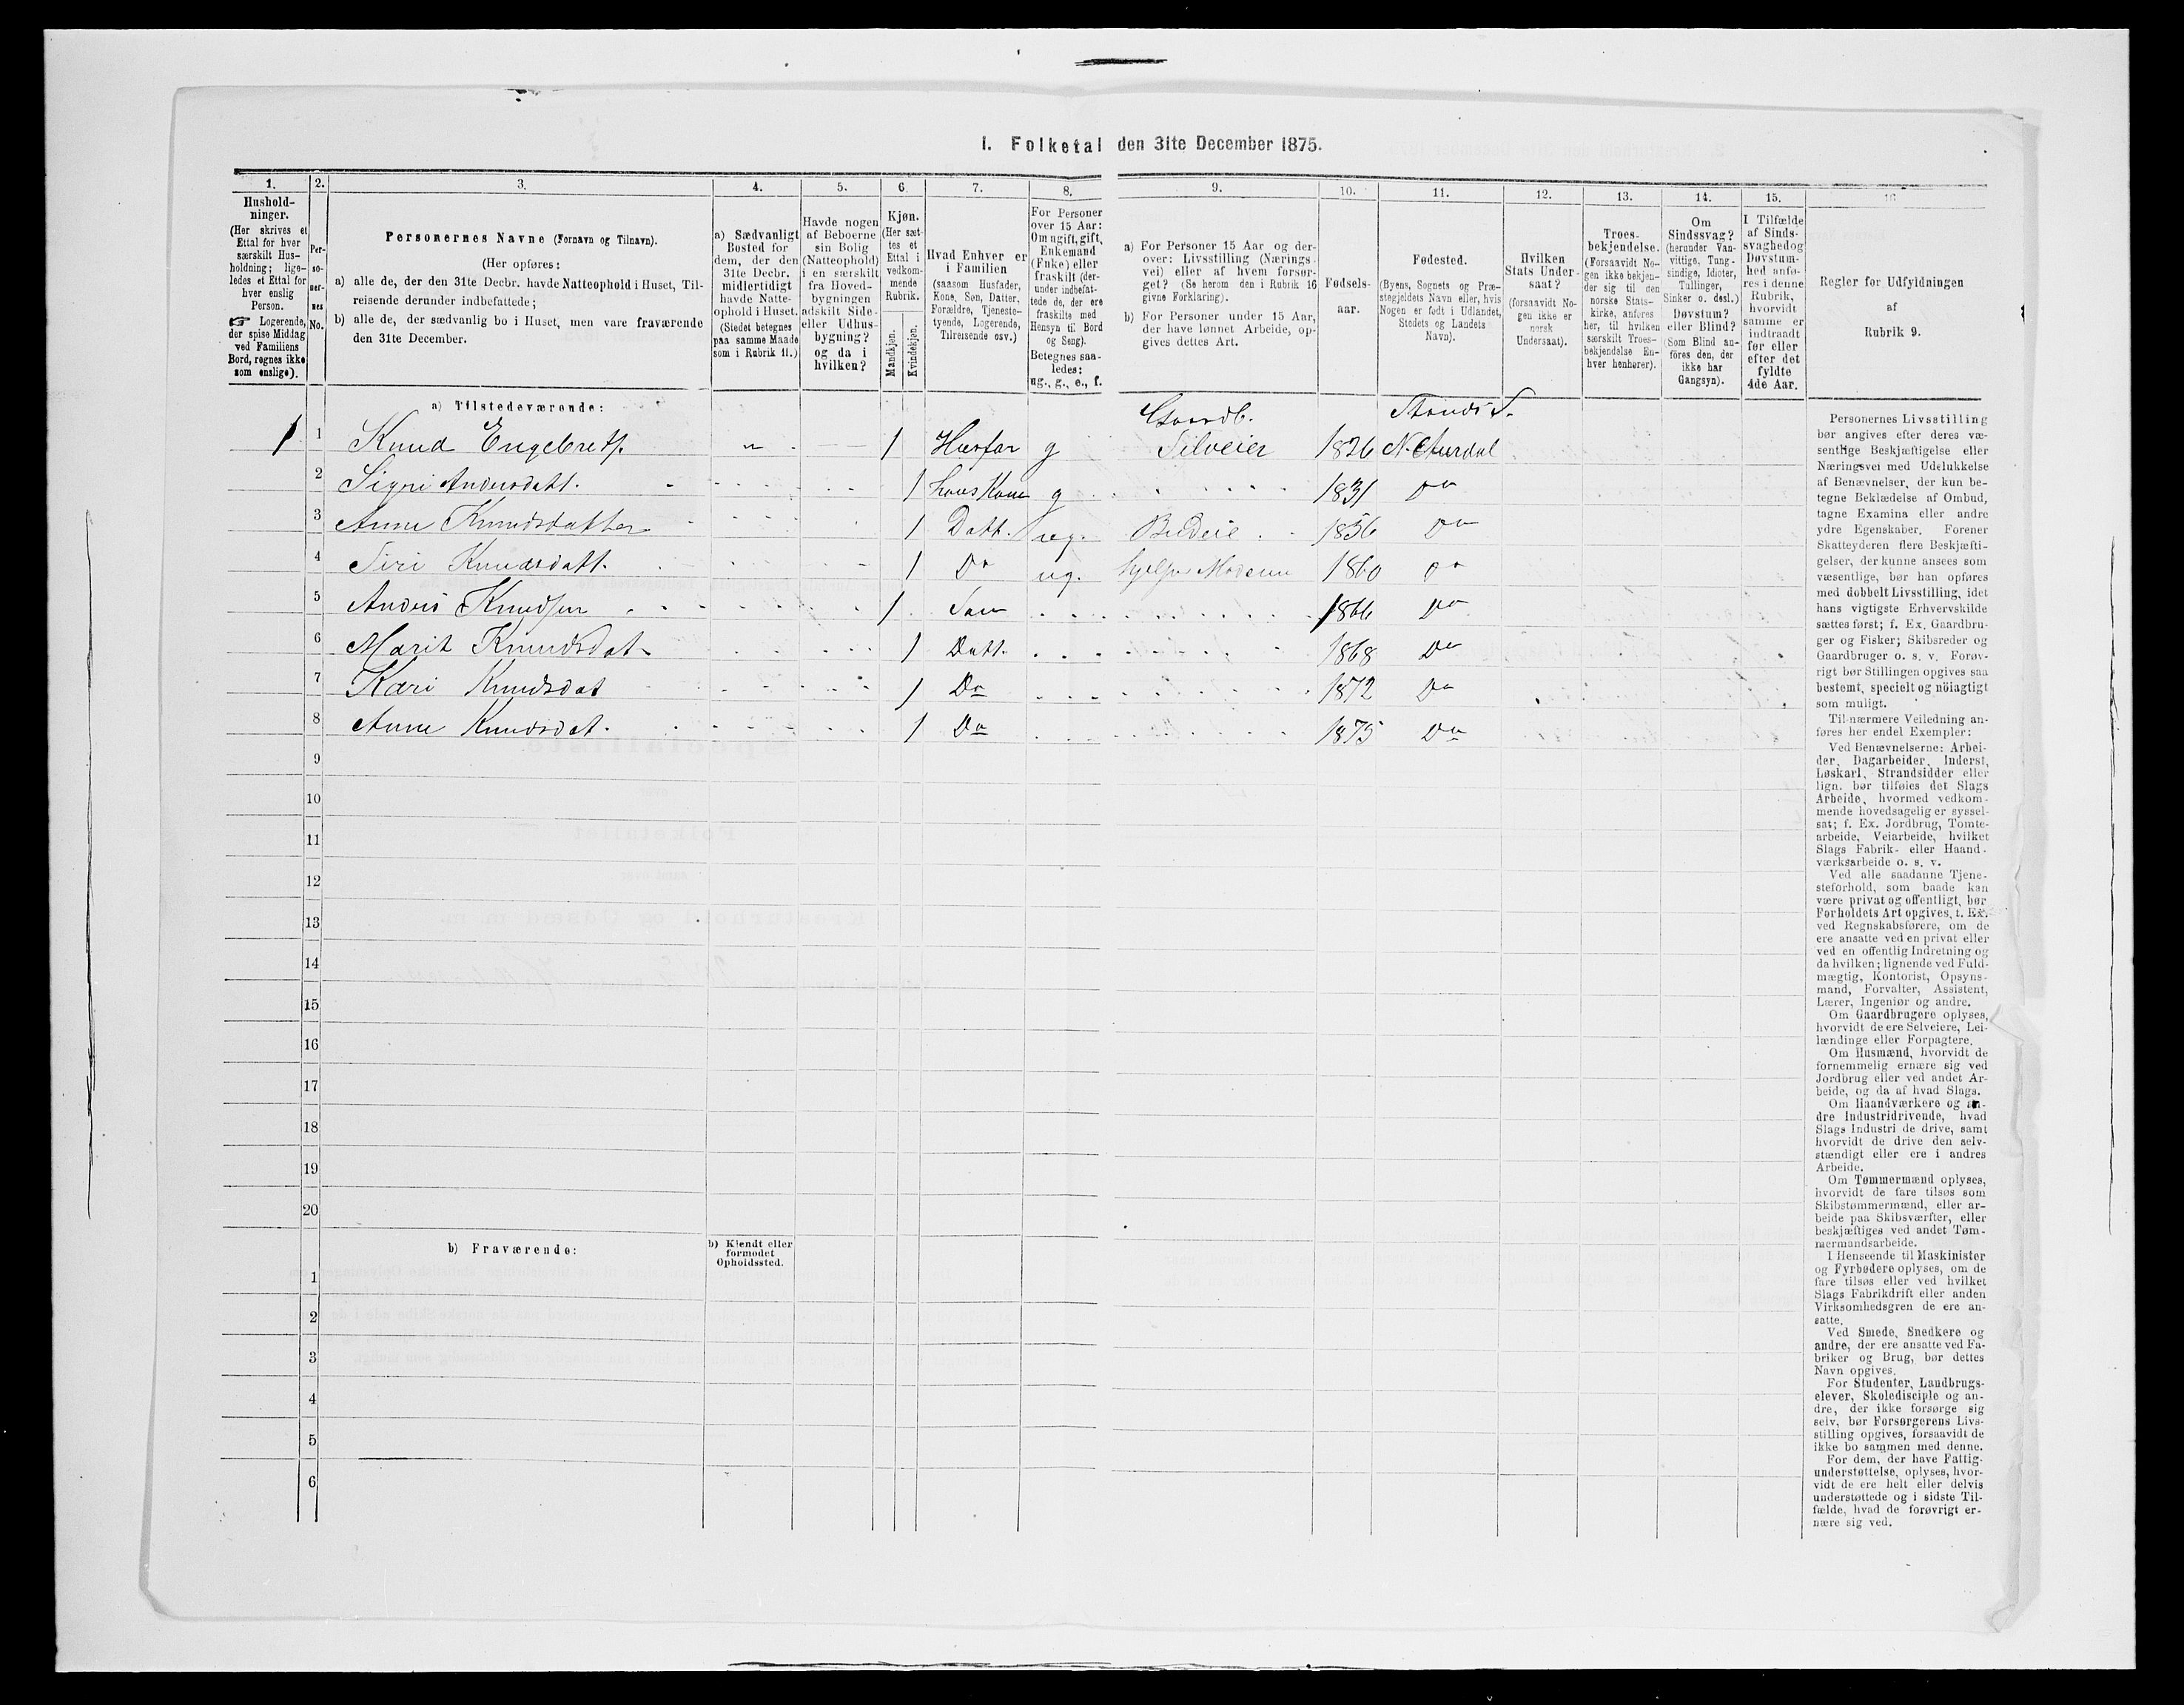 I. Folketal den 31te December 1875.
1.
Hushold-
ninger.
(Her skrives et
Ettal for hver
særskilt Hus-
holdning; lige-
ledes et Ettal for
hver enslig
Person.
☞ Logerende,
der spise Middag
ved Familiens
Bord, regnes ikke
som enslige).
2.
Per-
so-
ner-
nes
No.
3.
Personernes Navne (Fornavn og Tilnavn).
(Her opføres:
a) alle de, der den 31te Decbr. havde Natteophold i Huset, Til-
reisende derunder indbefattede;
b) alle de, der sædvanlig bo i Huset, men vare fraværende
den 31te December.
4.
a) Sædvanligt
Bosted for
dem, der den
31te Decbr.
midlertidigt
havde Natte-
ophold i Huset.
(Stedet betegnes
paa samme Maade
som i Rubrik 11.)
5.
Havde nogen
af Beboerne
sin Bolig
(Natteophold)
i en særskilt
fra Hoved-
bygningen
adskilt Side-
eller Udhus-
bygning?
og da i
hvilken?
6.
Kjøn.
(Her sæt-
tes et
Ettal i
vedkom-
mende
Rubrik.
Mandkjøn.
Kvindekjøn.
7.
Hvad Enhver er
i Familien
(saasom Husfader,
Kone, Søn, Datter,
Forældre, Tjeneste-
tyende, Logerende,
Tilreisende osv.)
8.
For Personer
over 15 Aar:
Om ugift, gift,
Enkemand
(Enke) eller
fraskilt (der-
under indbefat-
tede de, der ere
fraskilte med
Hensyn til Bord
og Seng).
Betegnes saa-
ledes:
ug., g., e., f.
9.
a) For Personer 15 Aar og der-
over: Livsstilling (Nærings-
vei) eller af hvem forsør-
get? (Se herom den i Rubrik 16
givne Forklaring).
b) For Personer under 15 Aar,
der have lønnet Arbeide, op-
gives dettes Art.
10.
Fødsels-
aar.
11.
Fødested.
(Byens, Sognets og Præ-
stegjeldets Navn eller, hvis
Nogen er født i Udlandet,
Stedets og Landets
Navn).
12.
Hvilken
Stats Under-
saat?
(forsaavidt No-
gen ikke er
norsk
Undersaat).
13.
Troes-
bekjendelse.
(Forsaavidt No-
gen ikke bekjen-
der sig til den
norske Stats-
kirke, anføres
her, til hvilken
særskilt Troes-
bekjendelse En-
hver henhører).
14.
Om
Sindssvag?
(herunder Van-
vittige, Tung-
sindige, Idioter,
Tullinger,
Sinker o. desl.)
Døvstum?
eller Blind?
(Som Blind an-
føres den, der
ikke har
Gangsyn).
15.
I Tilfælde
af Sinds-
svaghed og
Døvstum-
hed anfø-
res i denne
Rubrik,
hvorvidt
samme er
indtraadt
før eller
efter det
fyldte
4de Aar.
16
Regler for Udfyldningen
af
Rubrik 9.
a) Tilstedeværende:
Gaardb. S.
1 1 Knud Engebrets. " 1 Husfar g Selveier 1826 N. Aurdal
2 Sigri Andersdatt. 1 hans Kone g 1831 Do
3 Anne Knudsdatter 1 Datt. ug. Budeie 1856 Do
4 Siri Knudsdatt. 1 Do ug. hjelper Moderen 1860 Do
5 Anders Knudsen 1 Søn 1866 Do
6 Marit Knudsdat. 1 Datt. 1868 Do
7 Kari Knudsdat 1 Do 1872 Do
8 Anne Knudsdat. 1 Do 1875 Do
9
10
11
12
13
14
15
16
17
18
19
20
b) Fraværende:
b) Kjendt eller
formodet
Opholdssted.
1
2
3
4
5
6
Personernes Livsstilling
bør angives efter deres væ-
sentlige Beskjæftigelse eller
Næringsvei med Udelukkelse
af Benævnelser, der kun be-
tegne Beklædelse af Ombud,
tagne Examina eller andre
ydre Egenskaber. Forener
Skatteyderen flere Beskjæfti-
gelser, der kunne ansees som
væsentlige, bør han opføres
med dobbelt Livsstilling, idet
hans vigtigste Erhvervskilde
sættes først; f. Ex. Gaardbru-
ger og Fisker; Skibsreder og
Gaardbruger o. s. v. Forøv-
rigt bør Stillingen opgives saa
bestemt, specielt og nöiagtigt
som muligt.
Til nærmere Veiledning an-
føres her endel Exempler:
Ved Benævnelserne: Arbei-
der, Dagarbeider, Inderst,
Løskarl, Strandsidder eller
lign. bør tilføies det Slags
Arbeide, hvormed vedkom-
mende hovedsagelig er syssel-
sat; f. Ex. Jordbrug, Tomte-
arbeide, Veiarbeide, hvilket
Slags Fabrik- eller Haand-
værksarbeide o. s. v.
Ved alle saadanne Tjene-
steforhold, som baade kan
være privat og offentligt, bør
Forholdets Art opgives, t. Ex.
ved Regnskabsførere, om de
ere ansatte ved en privat eller
ved en offentlig Indretning og
da hvilken; lignende ved Fuld-
mægtig, Kontorist, Opsyns-
mand, Forvalter, Assistent,
Lærer, Ingeniør og andre.
Om Gaardbrugere oplyses,
hvorvidt de ere Selveiere, Lei-
lændinge eller Forpagtere.
Om Husmænd, hvorvidt de
fornemmelig ernære sig ved
Jordbrug eller ved andet Ar-
beide, og da af hvad Slags.
Om Haandværkere og an-
dre Industridrivende, hvad
Slags Industri de drive, samt
hvorvidt de drive den selv-
stændigt eller ere i andres
Arbeide.
Om Tømmermænd oplyses,
hvorvidt de fare tilsøs som
Skibstømmermænd, eller ar-
beide paa Skibsværfter, eller
beskjæftiges ved andet Tøm-
mermandsarbeide.
I Henseende til Maskinister
og Fyrbødere oplyses, om de
fare tilsøs eller ved hvilket
Slags Fabrikdrift eller anden
Virksomhedsgren de ere an-
satte.
Ved Smede, Snedkere og
andre, der ere ansatte ved Fa-
briker og Brug, bør dettes
Navn opgives.
For Studenter, Landbrugs-
elever, Skoledisciple og an-
dre, der ikke forsørge sig
selv, bør Forsørgerens Livs-
stilling opgives, forsaavidt de
ikke bo sammen med denne.
For dem, der have Fattig-
understøttelse, oplyses, hvor-
vidt de ere helt eller delvis
understøttede og i sidste Til-
fælde, hvad de forøvrigt er-
nære sig ved.